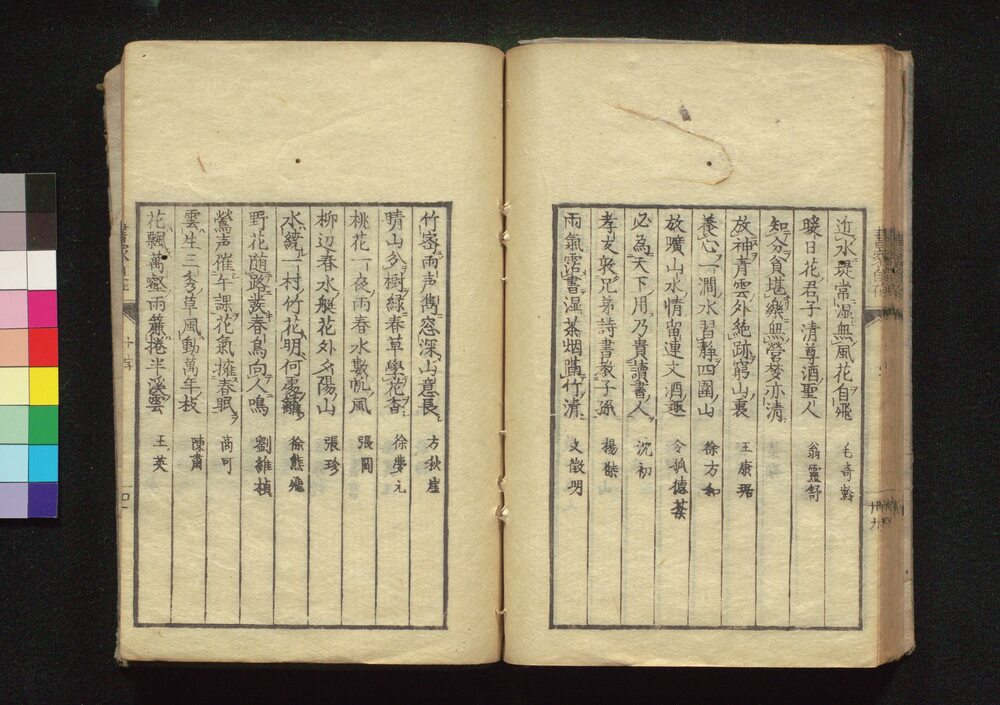 近水堤常湿無風花自飛 毛奇齡
暖日花君子清尊酒聖人 翁靈舒
知分貧堪樂無営夢亦清
放神青雲外絶跡窮山裏 王康琚
養心一澗水習静四圍山 徐方和
放曠山水情留連文酒趣 令狐德棻
必為天下用乃貴讀書人 沈初
孝友衆兄弟詩書教子孫 楊傑
雨氣霑書湿茶烟隔竹清 文徵明
竹密雨声雋窓深山意長 方秋崖
晴山多樹緑春草學花香 徐夢元
桃花一夜雨春水數帆風 張岡
柳辺春水艇花外夕陽山 張珍
水繞一村竹花明何處籬 徐熊飛
野花随路叢春鳥向人鳴 劉維楨
鶯声催午課花氣擁春眠 商可
雲生三秀草風動萬年枝 陳肅
花飄萬壑雨簾捲半溪雲 王英